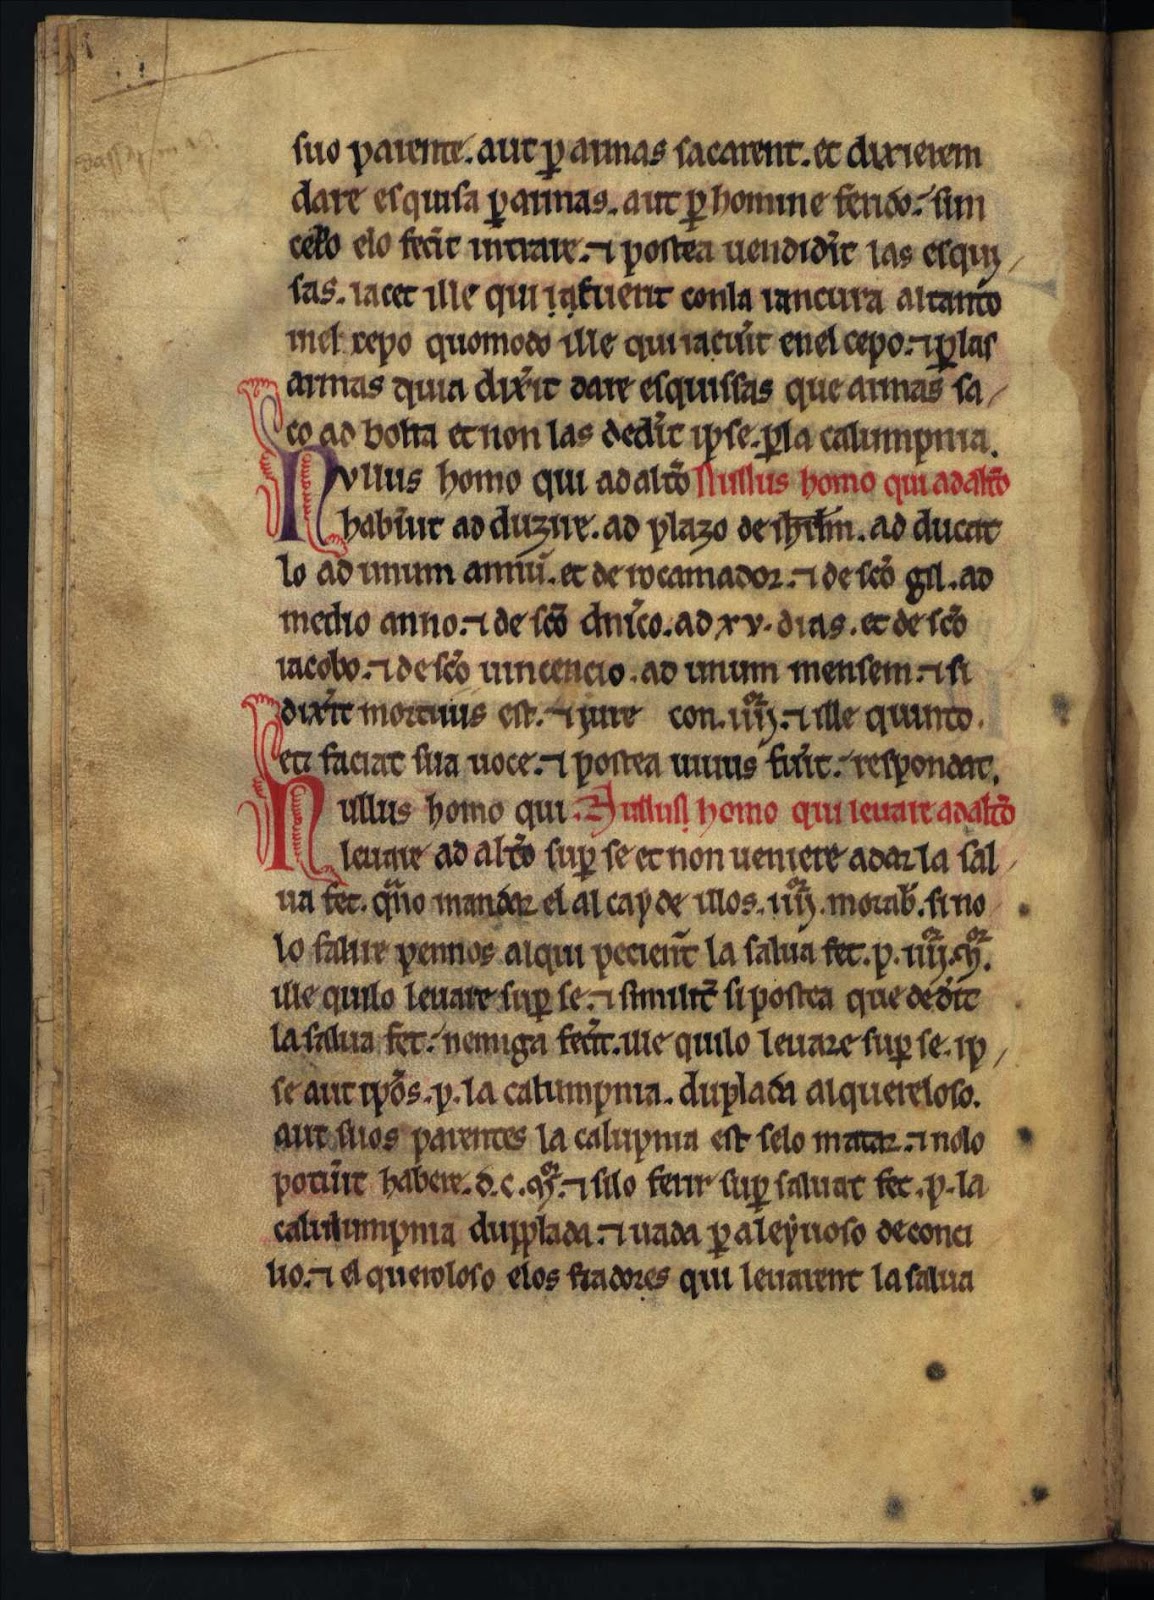 suo parente. aut ꝑ armas sacarent. et dixierem
dare esquisa ꝑ armas. aut ꝑ homine ferido. sim
celo elo fecit intrare. ⁊ postea uendidit las esqui
sas. iacet ille qui iactuerit conla iancura altanto
inel cepo quomodo ille qui iacuit enel cepo. ⁊ ꝑ las
armas quia dixit dare esquissas que armas sa
co ad bolta et non las dedit ipse. ꝑ la calumpnia.
Nvllus homo qui ad altõ Nullus homo qui ad altõ
habuit ad duzire. ad plazo de ihrlm. ad ducat
lo ad unum annũ. et de rocamador. ⁊ de scõ gil. ad
medio anno. ⁊ de scõ dnico. ad xv. dias. et de scõ
iacobo. ⁊ de scõ uincencio. ad unum mensem. ⁊ si
dixit mortuus est. ⁊ iure con. iiij. ⁊ ille quinto.
et faciat sua uoce. ⁊ postea uiuus fuit. respondat.
Nullus homo qui Nullus homo qui leuare ad altõ
leuare ad altõ suꝑ se et non ueniere a dar la sal
ua fet. quo mandar el alcayde illos. iiij. morab. si no
lo saluare pennos alqui pecierit la salua fet. p. iiij. m.
ille quilo leuare suꝑ se. ⁊ similit si postea que dedit
la salua fet. nemiga fecit. ille quilo leuare suꝑ se. ip
se aut ipos. p. la calumpnia. duplada alquereloso.
aut suos parentes la calupnia est selo matar. ⁊ nolo
potuit habere. d. c. m. ⁊ silo ferir suꝑ saluat fet. p. la
calulumpnia dupplada. ⁊ uada ꝑ aleyuoso de conci
lio. ⁊ el queroloso elos fiadores qui leuarent la salua